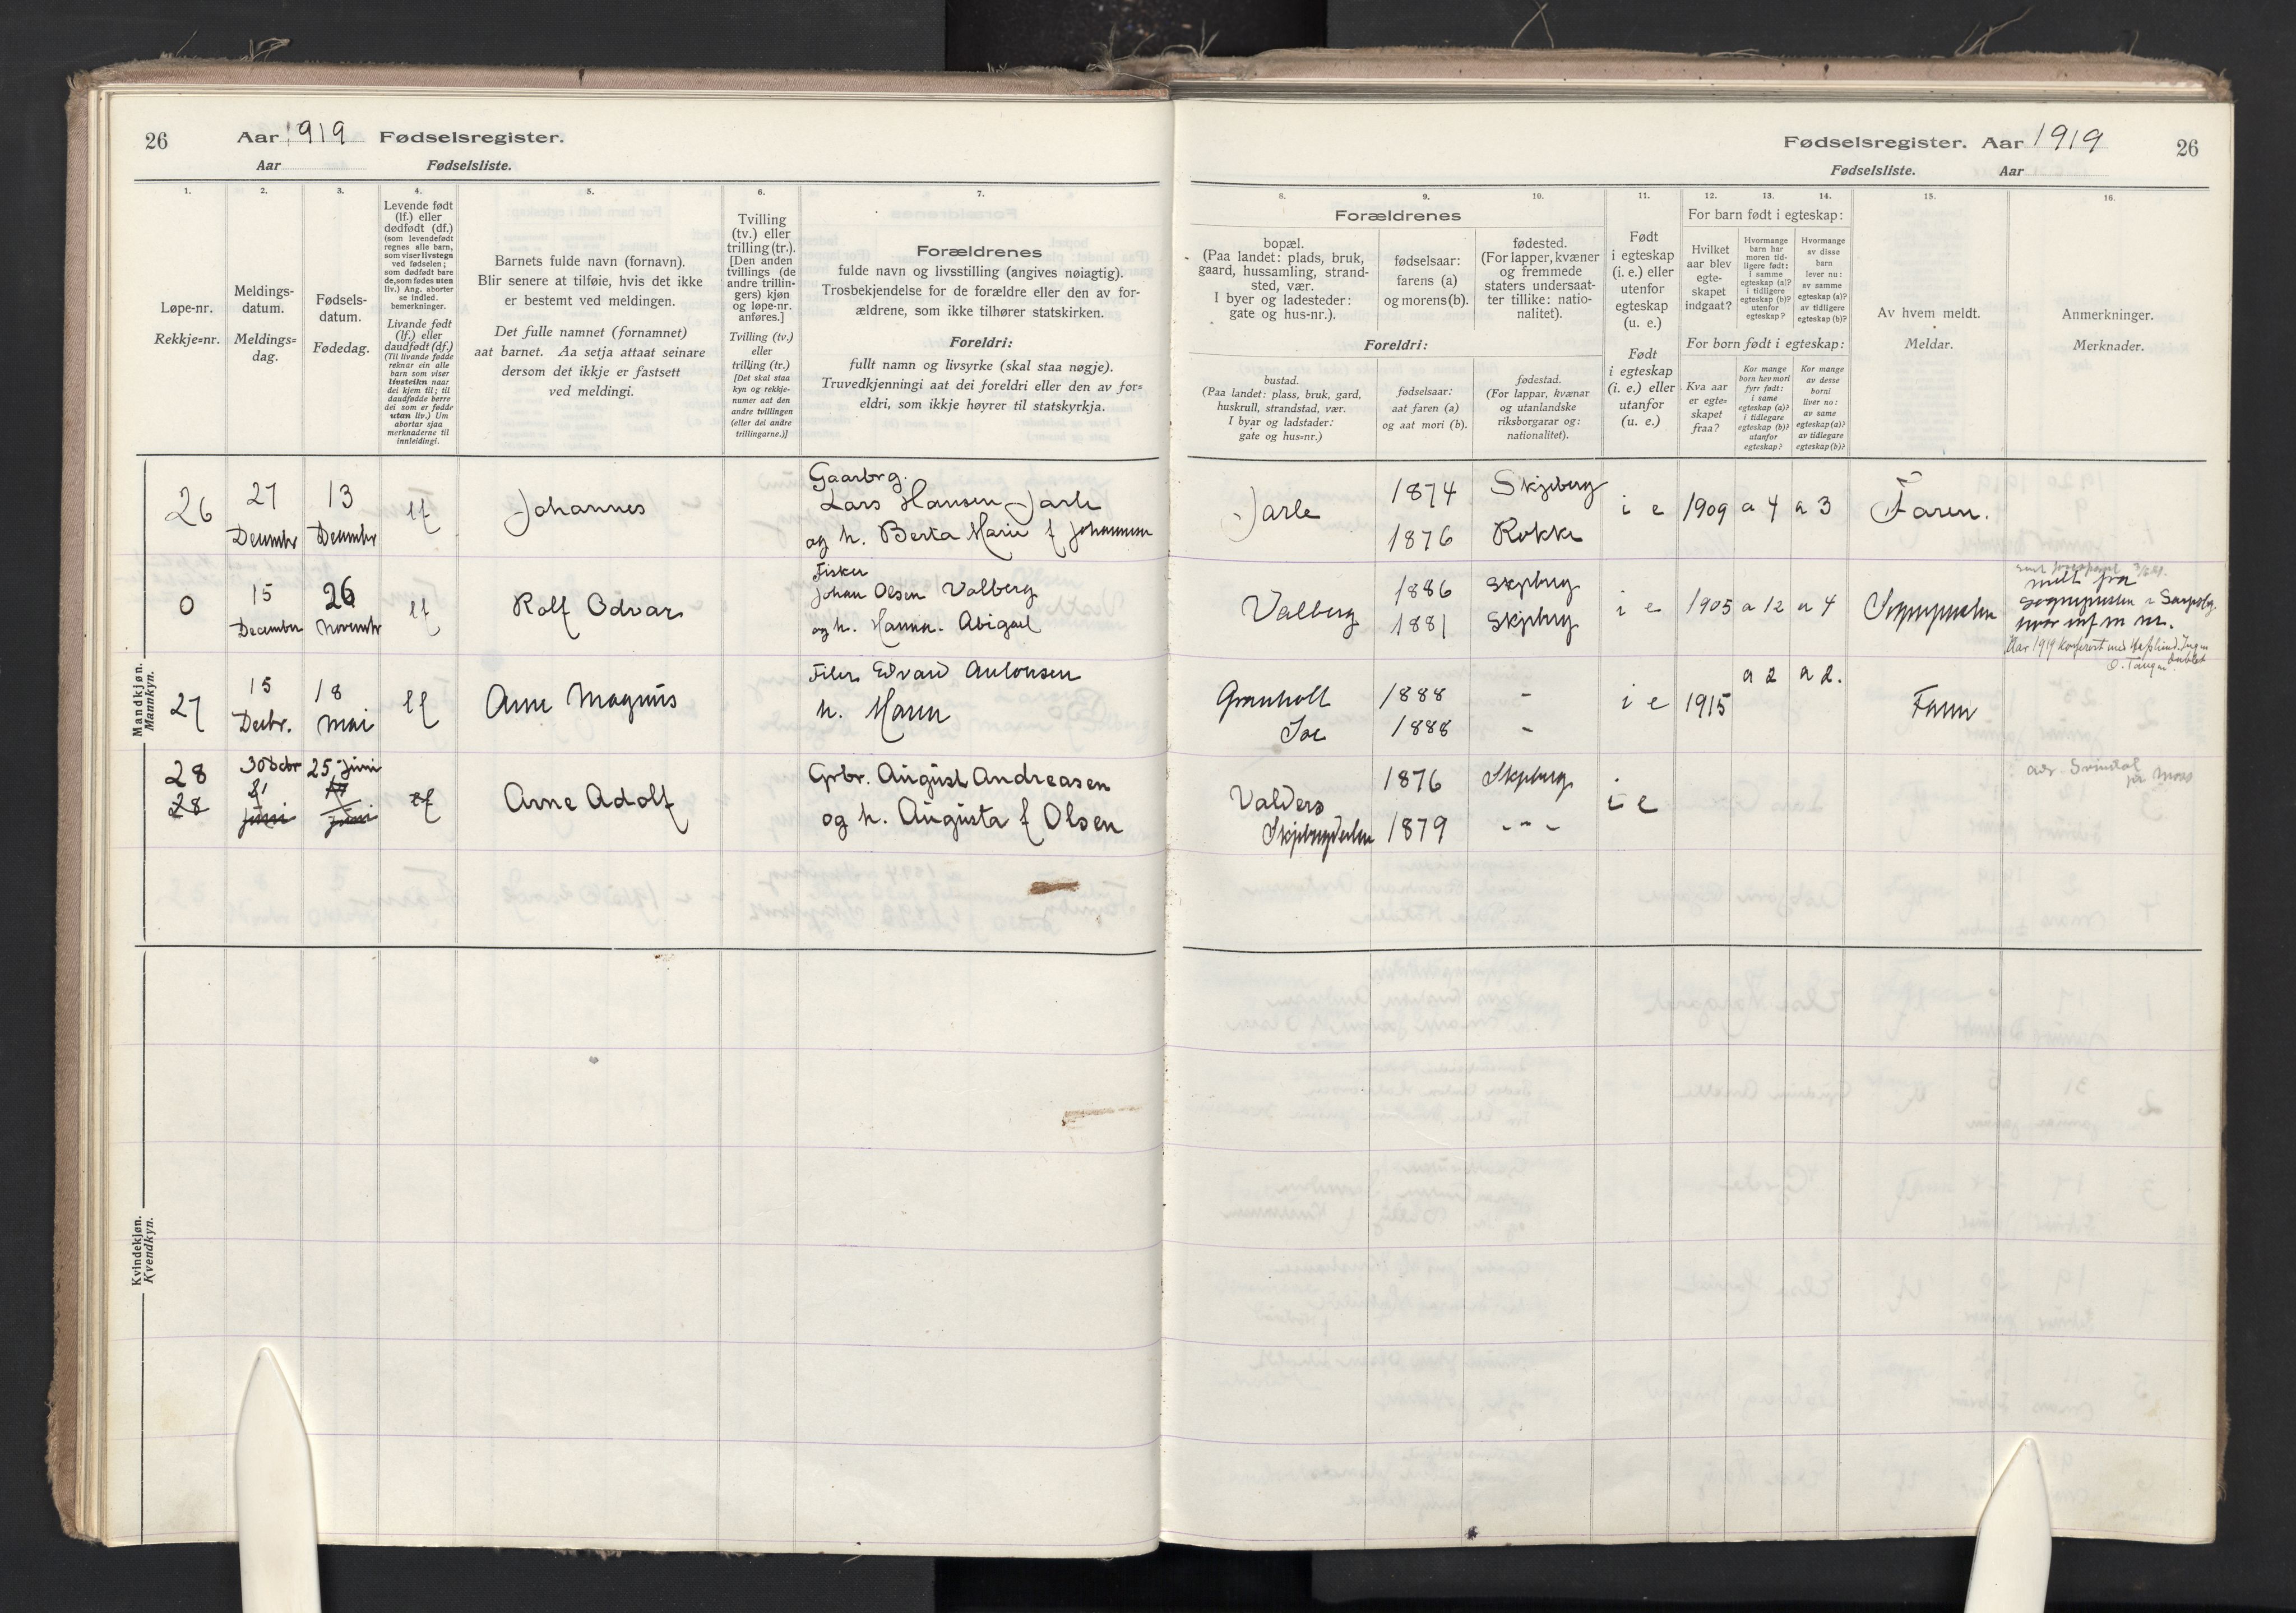 26 Aar 1919 Fødselsregister.
Aar Fødselsliste.
1.
Løpe-nr.
Rekkje-nr.
2.
Meldings-
datum.
Meldings-
dag.
3.
Fødsels-
datum.
Fødedag.
4.
Levende født
(lf.) eller
dødfødt (df.)
(som levendefødt
regnes alle barn,
som viser livstegn
ved fødselen;
som dødfødt bare
de, som fødes uten
liv.) Ang. aborter
se indled.
bemerkninger.
Livande født
(lf.) eller
daudfødt (df.)
(Til livande fødde
reknar ein alle
barn som viser
livsteikn naar
dei kjem til; til
daudfødde berre
dei som er fødde
utan liv.) Um
abortar sjaa
merknaderne til
innleidingi.
5.
Barnets fulde navn (fornavn).
Blir senere at tilføie, hvis det ikke
er bestemt ved meldingen.
Det fulle namnet (fornamnet)
aat barnet. Aa setja attaat seinare
dersom det ikkje er fastsett
ved meldingi.
6.
Tvilling
(tv.) eller
trilling (tr.).
[Den anden
tvillings (de
andre trillin-
gers) kjøn
og løpe-nr.
anføres.]
Tvilling (tv.)
eller
trilling (tr.)
[Det skal staa
kyn og rekkje-
numer aat den
andre tvillingen
(eller dei andre
trillingarne.)]
7.
Forældrenes
fulde navn og livsstilling (angives nøiagtig).
Trosbekjendelse for de forældre eller den av for-
ældrene, som ikke tilhører statskirken.
Foreldri:
fullt namn og livsyrke (skal staa nøgje).
Truvedkjenningi aat dei foreldri eller den av for-
eldri, som ikkje høyrer til statskyrkja.
Mandkjøn.
Mannkyn.
26
27
Decembr
13
Decembr
lf
Johannes
Gaarbrg.
Lars Hansen Jarle
og h. Berta Marie f Johannesen
0
15
December
26
Novembr
lf
Rolf Odvar
Fisker
Johan Olsen Valberg
og h. Hanna Abigael
27
15
Decbr.
18
Mai
lf
Arne Magnus
Edvard Antonsen
h. Maren
28
30 Decbr
25 Juni
28
21
Juni
Juni
lf
Arne Adolf
Grbr. August Andreasen
og h. Augusta f Olsen
Kvindekjøn.
Kvendkyn.
Fødselsregister. Aar 1919 26
Fødselsliste. Aar
8.
Forældrenes
bopæl.
(Paa landet: plads, bruk,
gaard, hussamling, strand-
sted, vær.
I byer og ladesteder:
gate og hus-nr.).
Foreldri:
bustad.
(Paa landet: plass, bruk, gard,
huskrull, strandstad, vær.
I byar og ladstader:
gate og hus-nr.)
9.
fødselsaar:
farens (a)
og morens (b).
fødselsaar:
aat faren (a)
og aat mori (b).
10.
fødested.
(For lapper, kvæner
og fremmede
staters undersaat-
ter tillike: natio-
nalitet).
fødestad.
(For lappar, kvænar
og utanlandske
riksborgarar og:
nationalitet).
11.
Født
i egteskap
(i. e.) eller
utenfor
egteskap
(u. e.)
Født
i egteskap
(i. e.) eller
utanfor
(u. e.)
For barn født i egteskap:
For born født i egteskap:
12.
Hvilket
aar blev
egte-
skapet
indgaat?
Kva aar
er egte-
skapet
fraa?
13.
Hvormange
barn har
moren tid-
ligere født:
i samme
egteskap (a)?
i tidligere
egteskap (b)?
utenfor
egteskap?
Kor mange
born hev mori
fyrr født:
i same
egteskap (a)?
i tidlegare
egteskap (b)?
utanfor
egteskap?
14.
Hvormange
av disse
barn
lever nu:
av samme
egteskap (a)?
av tidligere
egteskap (b)?
Kor mange
av desse
borni
liver no:
av same
egteskap (a)?
av tidlegare
egteskap (b)?
15.
Av hvem meldt.
Meldar.
16.
Anmerkninger.
Merknader.
Jarle
1874
1876
Skjeberg
Rokke
i e
1909
a 4
a 3
Faren.
Valberg
1886
1881
Skjeberg
Skjeberg
i e
1905
a 12
a 4
Sognepresten
meldt fra
Sognepresten i Sarpsbg.
1888
1888
-
-
i e
1915
a 2
a 2.
Faren
Valders
Skjebergdalen
1876
1879
Skjeberg
- " -
i e
adr. Svindal
pr Moss